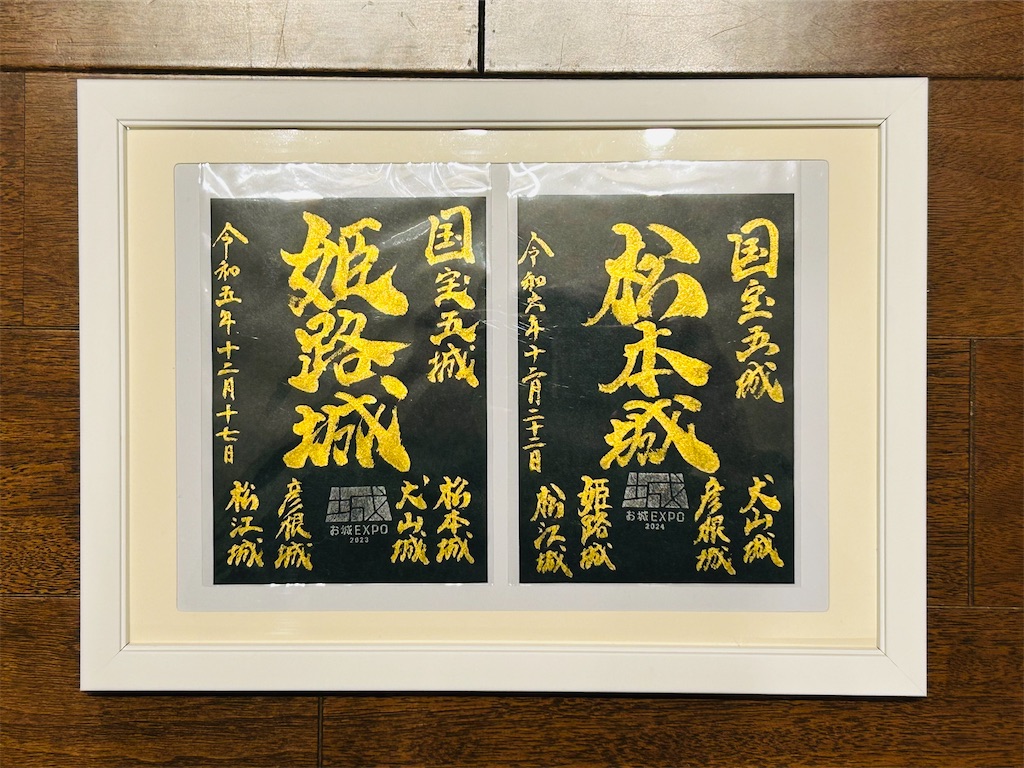 国宝五城
姫路城
令和五年十二月十七日
松本城
犬山城
城
お城EXPO
2023
彦根城
松江城
国宝五城
松本城
令和六年十二月二十二日
犬山城
彦根城
城
お城EXPO
2024
姫路城
松江城